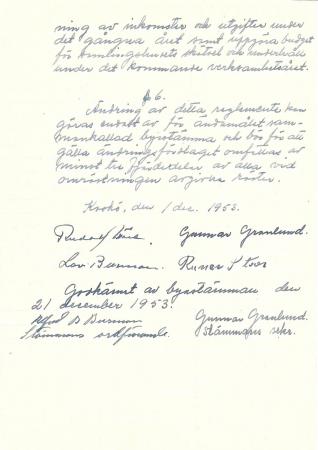 ning av inkomster och utgifter under
det gångna året samt uppgöra budget
för samlingshusets skötsel och underhåll
under det kommande verksamhetsåret.
§ 6.
Ändring av detta reglemente kan
göras endast av för ändamålet sam-
mankallad bystämma och bör för att
gälla ändringsförslaget omfattas av
minst tre fjärdedelar av alla vid
omröstningen avgivna röster.
den 1 dec. 1953.
Rudolf
Gunnar Granlund.
Runar Stor
Godkänt av bystämman den
21 december 1953.
Stämmans ordförande.
Gunnar Granlund.
Stämmans sekr.